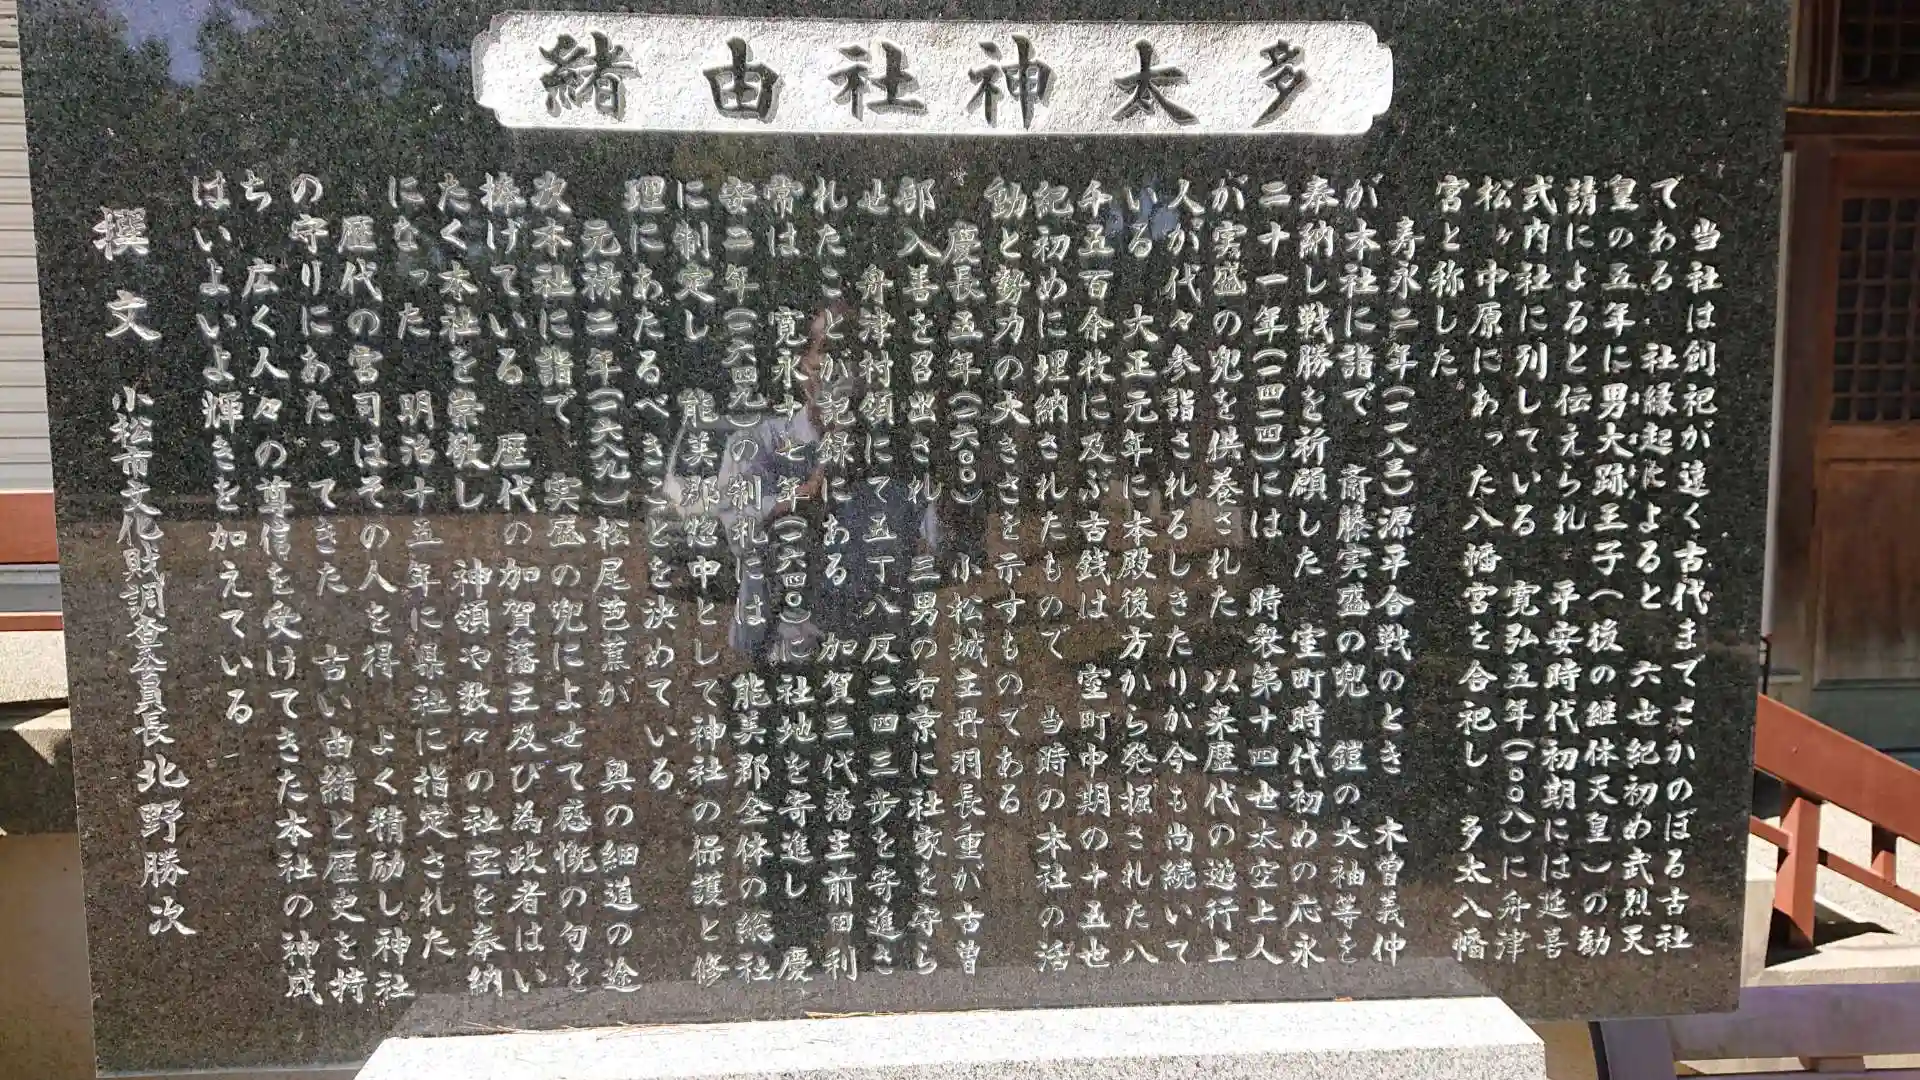 多太神社由緒
当社は創祀が遠く古代までさかのぼる古社
である 社縁起によると 六世紀初め武烈天
皇の五年に男大跡王子(後の継体天皇)の勧
請によると伝えられ 平安時代初期には延喜
式内社に列している 寛弘五年(一〇〇八)に舟津
松ヶ中原にあった八幡宮を合祀し 多太八幡
宮と称した
寿永二年(一一八三)源平合戦のとき 木曽義仲
が本社に詣で 斎藤実盛の兜 鎧の大袖等を
奉納し戦勝を祈願した 室町時代初めの応永
二十一年(一四一四)には 時衆第十四世太空上人
が実盛の兜を供養された 以来歴代の遊行上
人が代々参詣されるしきたりが今も尚続いて
いる 大正元年に本殿後方から発掘された八
千五百余枚に及ぶ古銭は 室町中期の十五世
紀初めに埋納されたもので 当時の本社の活
動と勢力の大きさを示すものである
慶長五年(一六〇〇) 小松城主丹羽長重が古曽
部入善を召出され 三男の右京に社家を守ら
せ 舟津村領にて五丁八反二四三歩を寄進さ
れたことが記録にある 加賀三代藩主前田利
常は 寛永十七年(一六四〇)に社地を寄進し 慶
安二年(一六四九)の制札には 能美郡全体の総社
に制定し 能美郡惣中として神社の保護と修
理にあたるべきことを決めている
元禄二年(一六八九)松尾芭蕉が 奥の細道の途
次本社に詣で 実盛の兜によせて感慨の句を
捧げている 歴代の加賀藩主及び為政者はい
たく本社を崇敬し 神領や数々の社宝を奉納
になった 明治十五年に県社に指定された
歴代の宮司はその人を得 よく精励し神社
の守りにあたってきた 古い由緒と歴史を持
ち 広く人々の尊信を受けてきた本社の神威
はいよいよ輝きを加えている
撰文 小松市文化財調査委員長 北野勝次